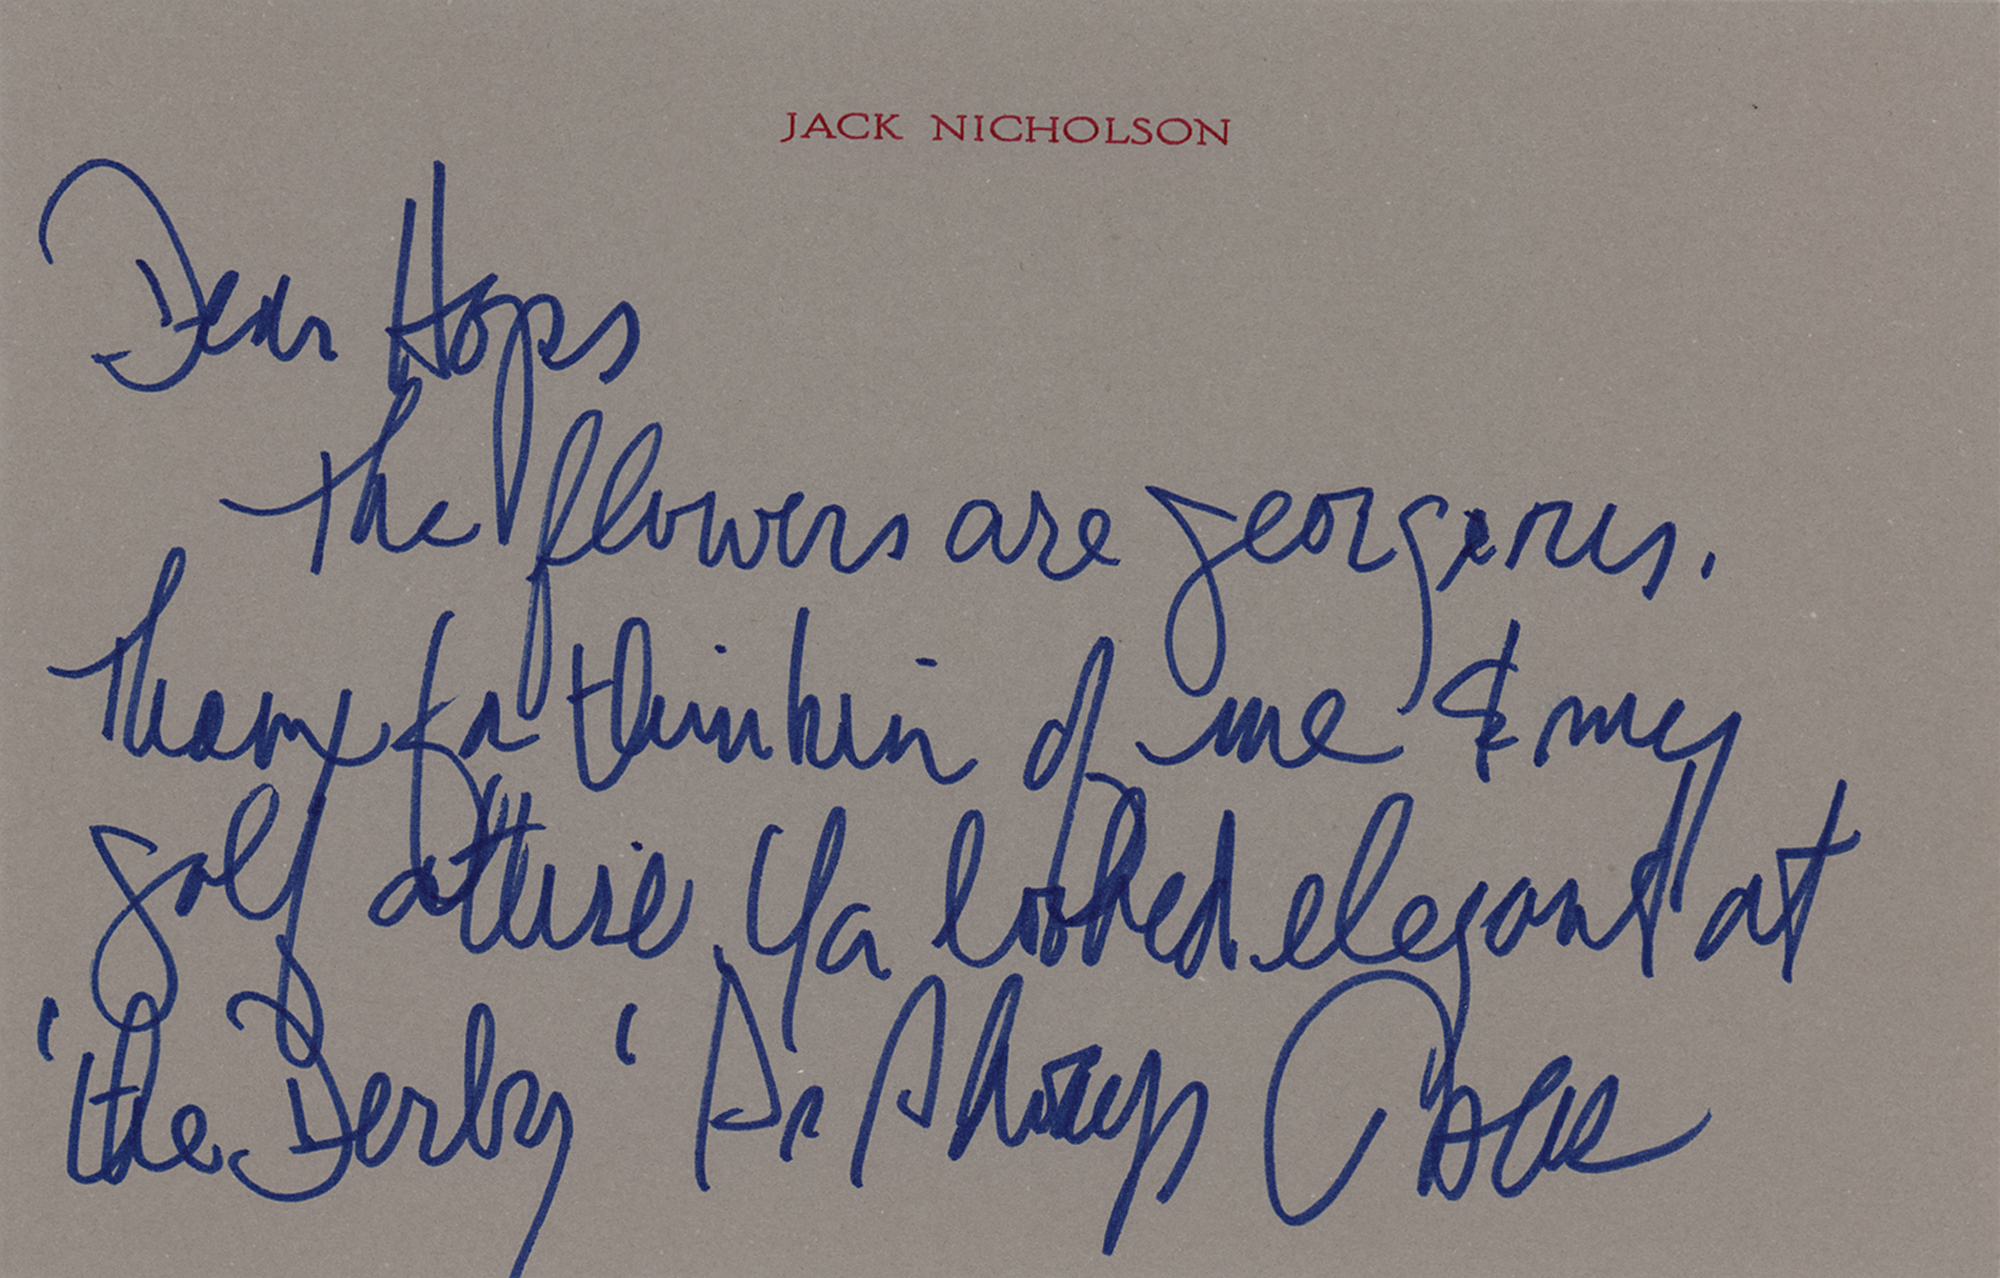 JACK NICHOLSON
Dear Hops
The flowers are georgeous.
Thanx for thinkin of me & my
golf attire. Ya looked elegant at
'the Derby' As Always